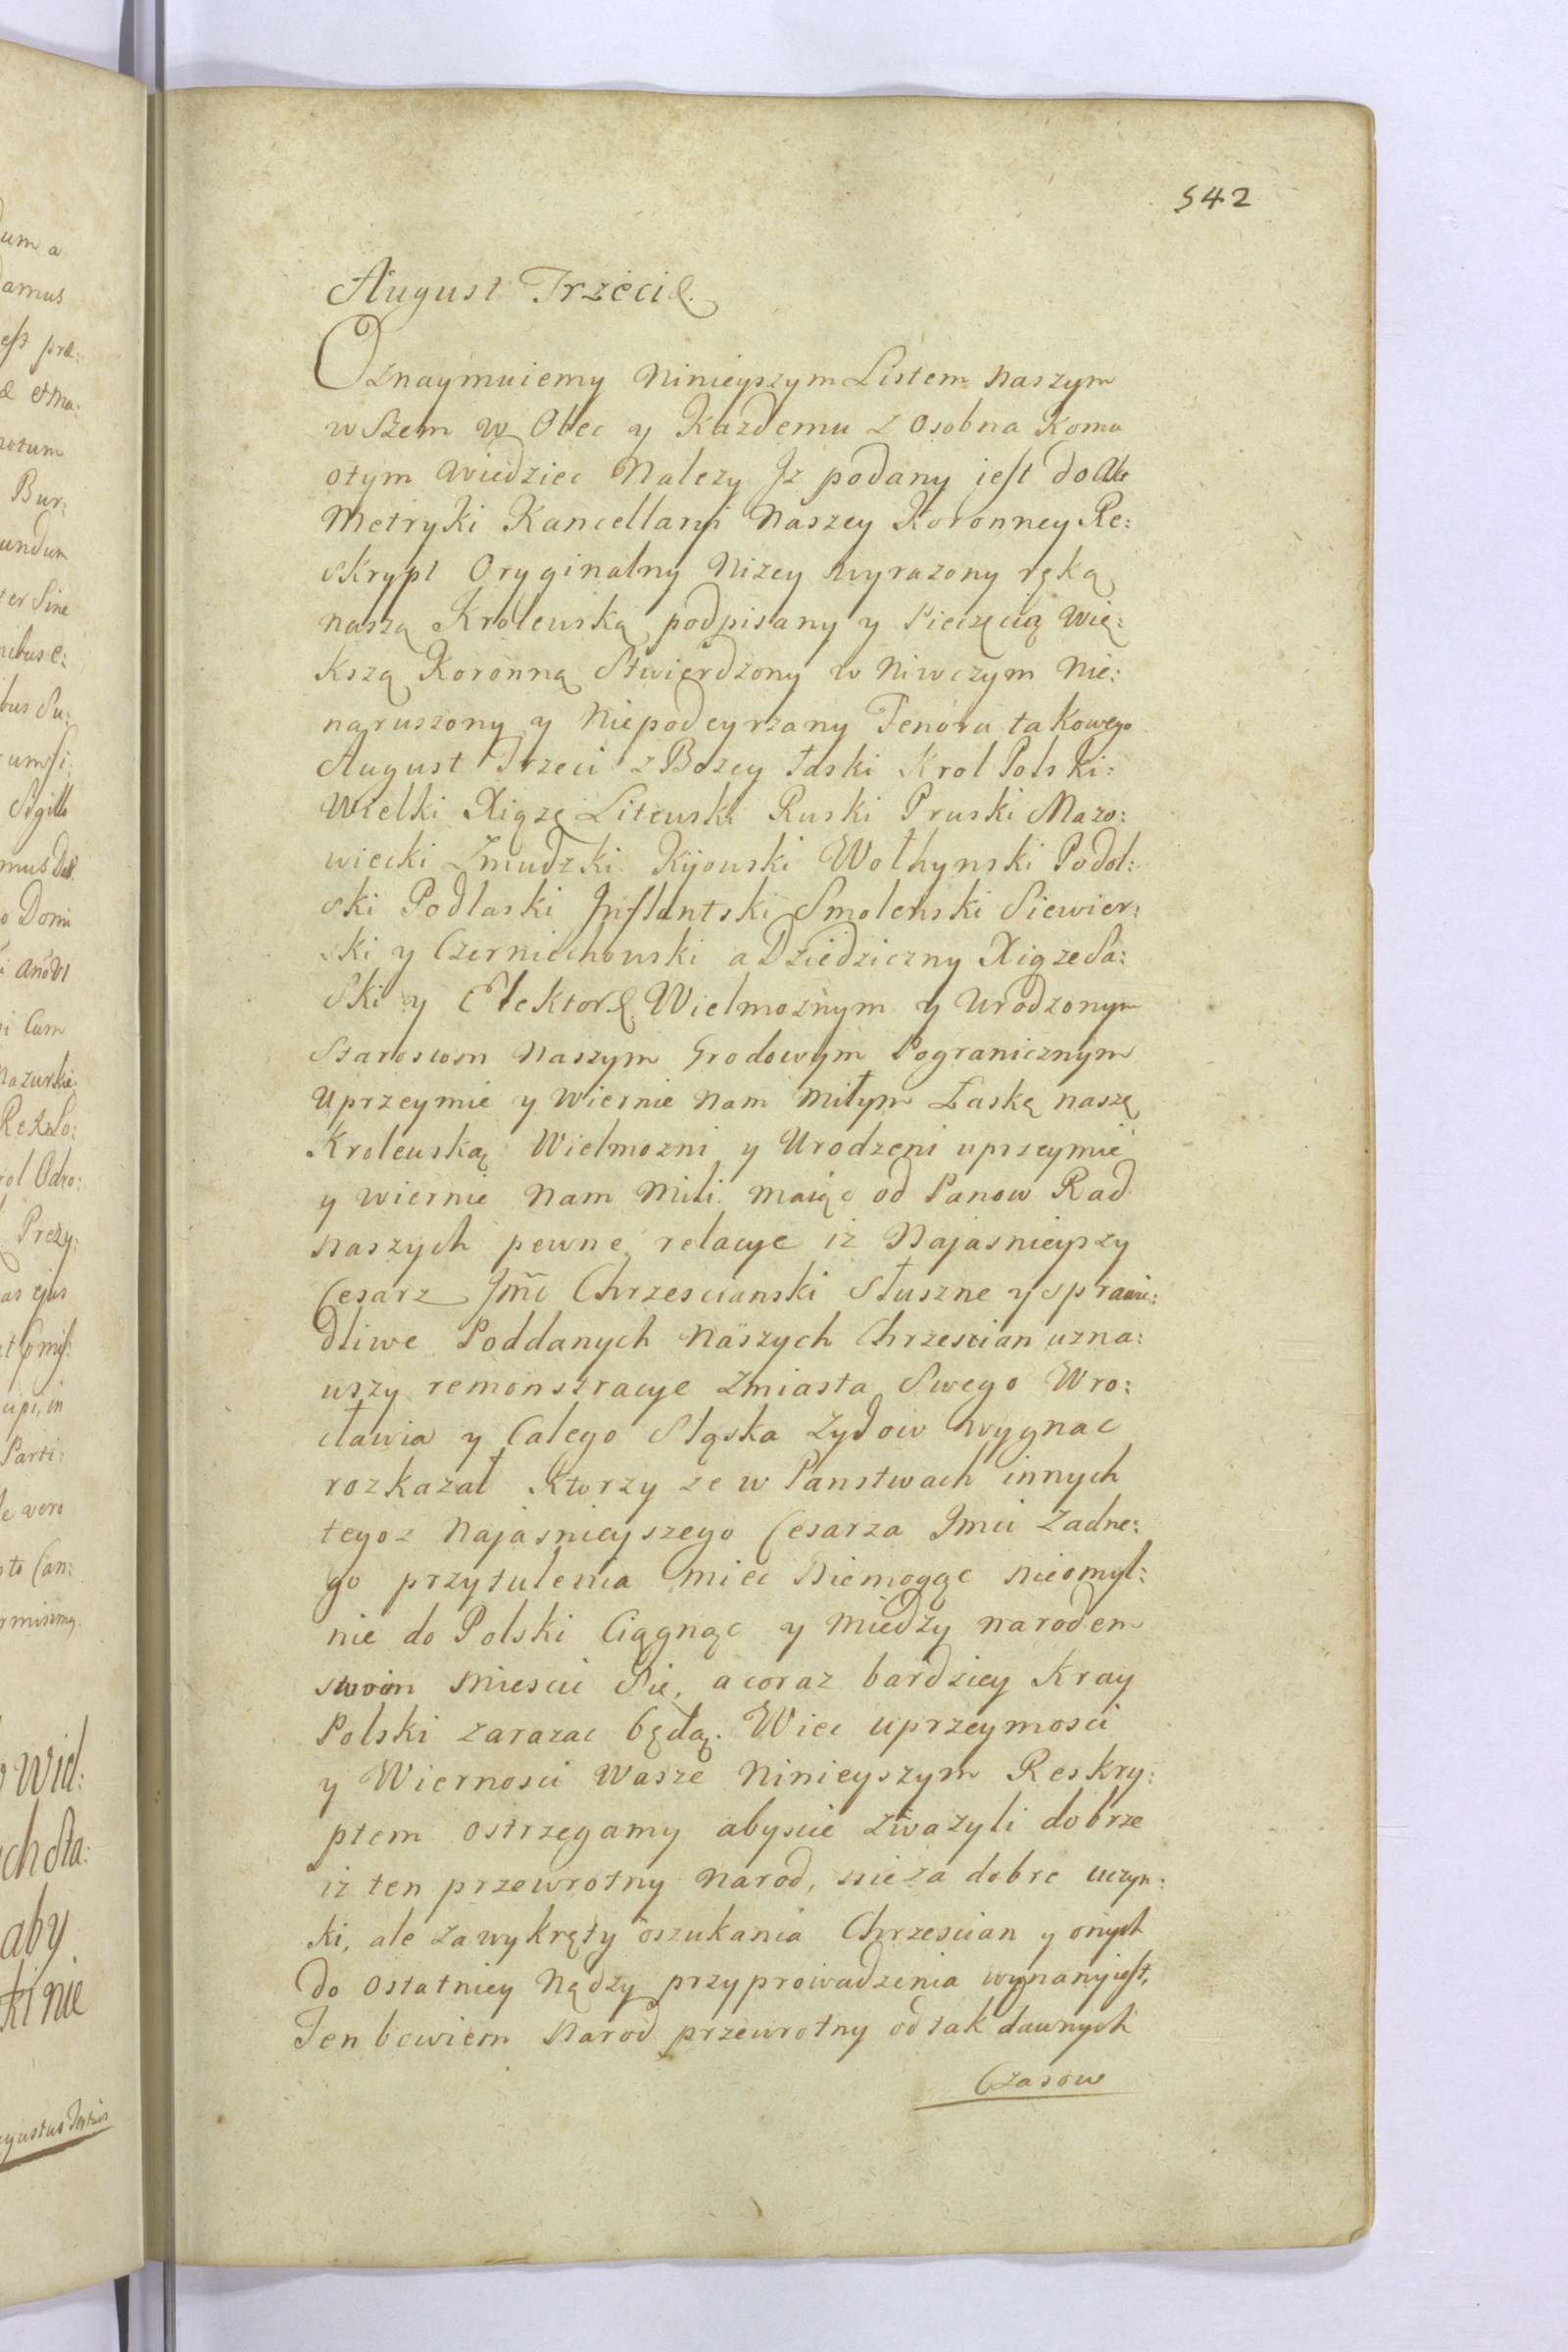 542
August Trzeci &.
Oznaymuiemy Ninieyszym Listem Naszym
w Szem w Obec y Każdemu z Osobna Komu
otym wiedziec Nalezy Jz podany iest do Akt
Metryki Kancellaryi Naszey Koronney Re:
skrypt Oryginalny Nizey wyrazony ręką
naszą Krolewską podpisany y Pieczęcią Wię:
kszą Koronną Stwierdzony w Niwczym Nie:
naruszony y Niepodeyrzany Tenoru takowego
August Trzeci z Bozey łaski Krol Polski:
Wielki Xiązę Litewski Ruski Pruski Mazo:
wiecki Zmudzki Kijowski Wołhynski Podol:
ski Podlaski Jnflantski Smolenski Siewier:
ski y Czerniechowski a Dziedziczny Xiąze Sa:
Ski y Elektor &. Wielmoznym y Urodzonym
Starostom Naszym Grodowym Pogranicznym
Uprzeymie y Wiernie Nam Miłym Łaskę naszę
Krolewską Wielmozni y Urodzeni uprzeymie
y wiernie Nam Mili. Maiąc od Panow Rad
Naszych pewne relacye iż Najasnieyszy
Cesarz Jmc Chrzescianski Słuszne y sprawie:
dliwe Poddanych Naszych Chrzescian uzna:
wszy remonstracye zmiasta Swego Wro:
cławia y Całego Sląska Zydow wygnac
rozkazał Ktorzy ze w Panstwach innych
tegoz Najasnieyszego Cesarza Jmci Zadne:
go przytulenia miec Niemogąc nieomyl:
nie do Polski Ciągnąc y Miedzy narodem
swoim Miescic Się, a coraz bardziey Kray
Polski zarazac będą. Wiec uprzeymosci
y Wiernosci Wasze Ninieyszym Reskry:
ptem ostrzegamy abyscie zważyli dobrze
iz ten przewrotny Narod, nie za dobre uczyn:
ki, ale za wykręty oszukania Chrzescian y onych
do ostatniey Nędzy przyprowadzenia wygnany iest,
Ten bowiem Narod przewrotny od tak dawnych
Czasow